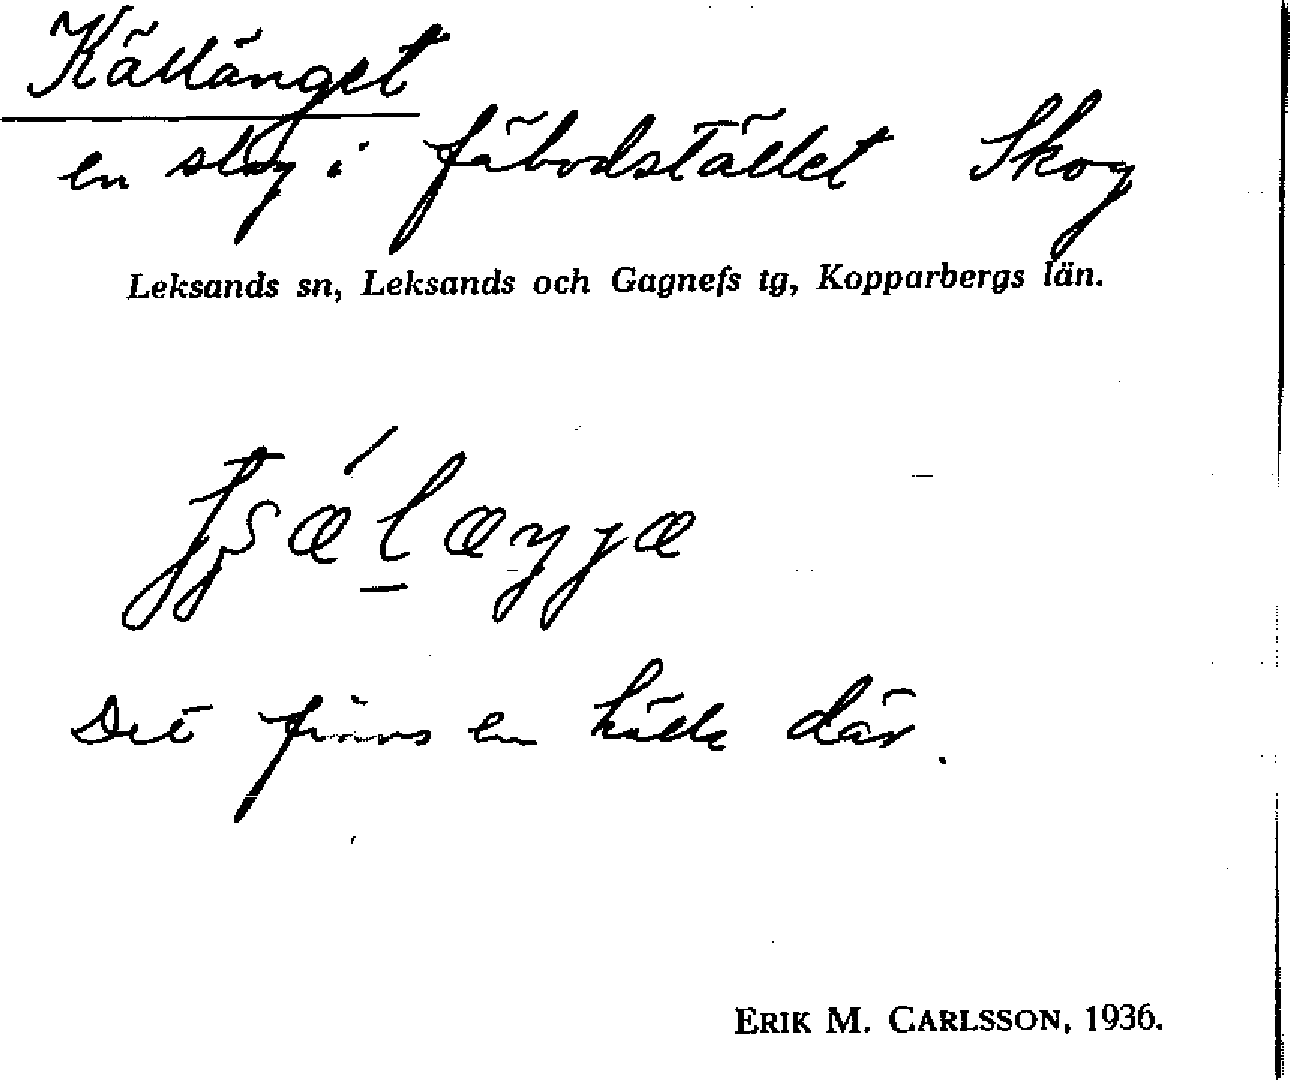 Källänget
en slog i fäbodstället Skog
Leksands sn, Leksands och Gagnefs tg, Kopparbergs län.
Det finns en källa där.
ERIK M. CARLSSON, 1936.